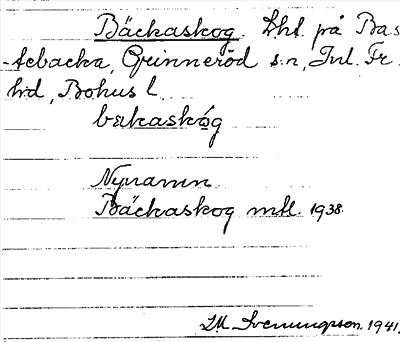 Bäckaskog. Lht. på Bas
-tebacka, Grinneröd s:n, Inl. Fr.
h:d, Bohus l.
bækaskóg
Nynamn
Bäckaskog mtl. 1938.
Sveningsson. 1941.